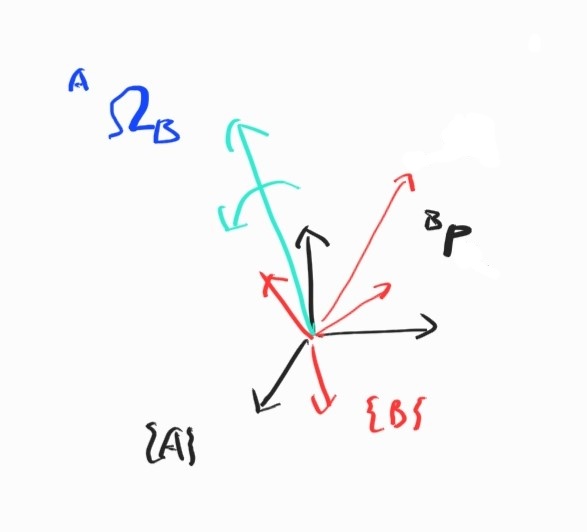 A
Ω_B
B P
{B}
{A}